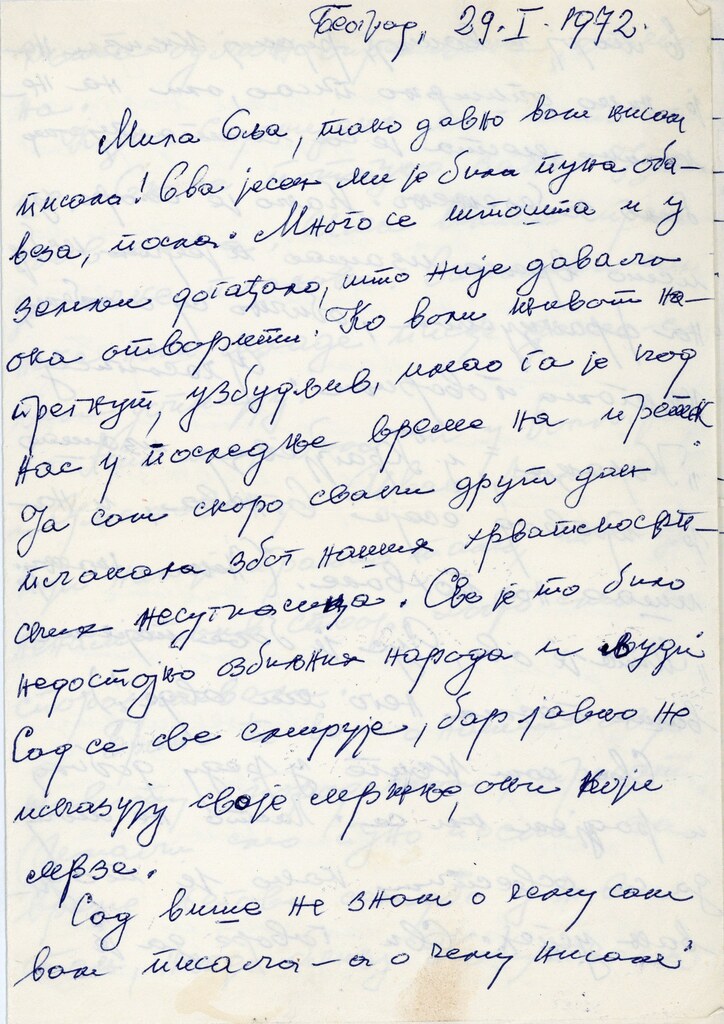 Београд, 29. I. 1972.
Мила Оља, тако давно вам нисам
писала! Ова јесен ми је била пуна оба-
веза, посла. Много се штошта и у
земљи догађало, што није давало
ока отворити. Ко воли живот на-
прегнут, узбудљив, имао га је код
нас у последње време на претек.
Ја сам скоро сваки други дан
плакала због наших хрватскосрп-
ских несугласица. Све је то било
недостојно озбиљних народа и људи
Сад се све смирује, бар јавно не
исказују своје мржње, они који
мрзе.
Сад више не знам о чему сам
вам писала – а о чему нисам